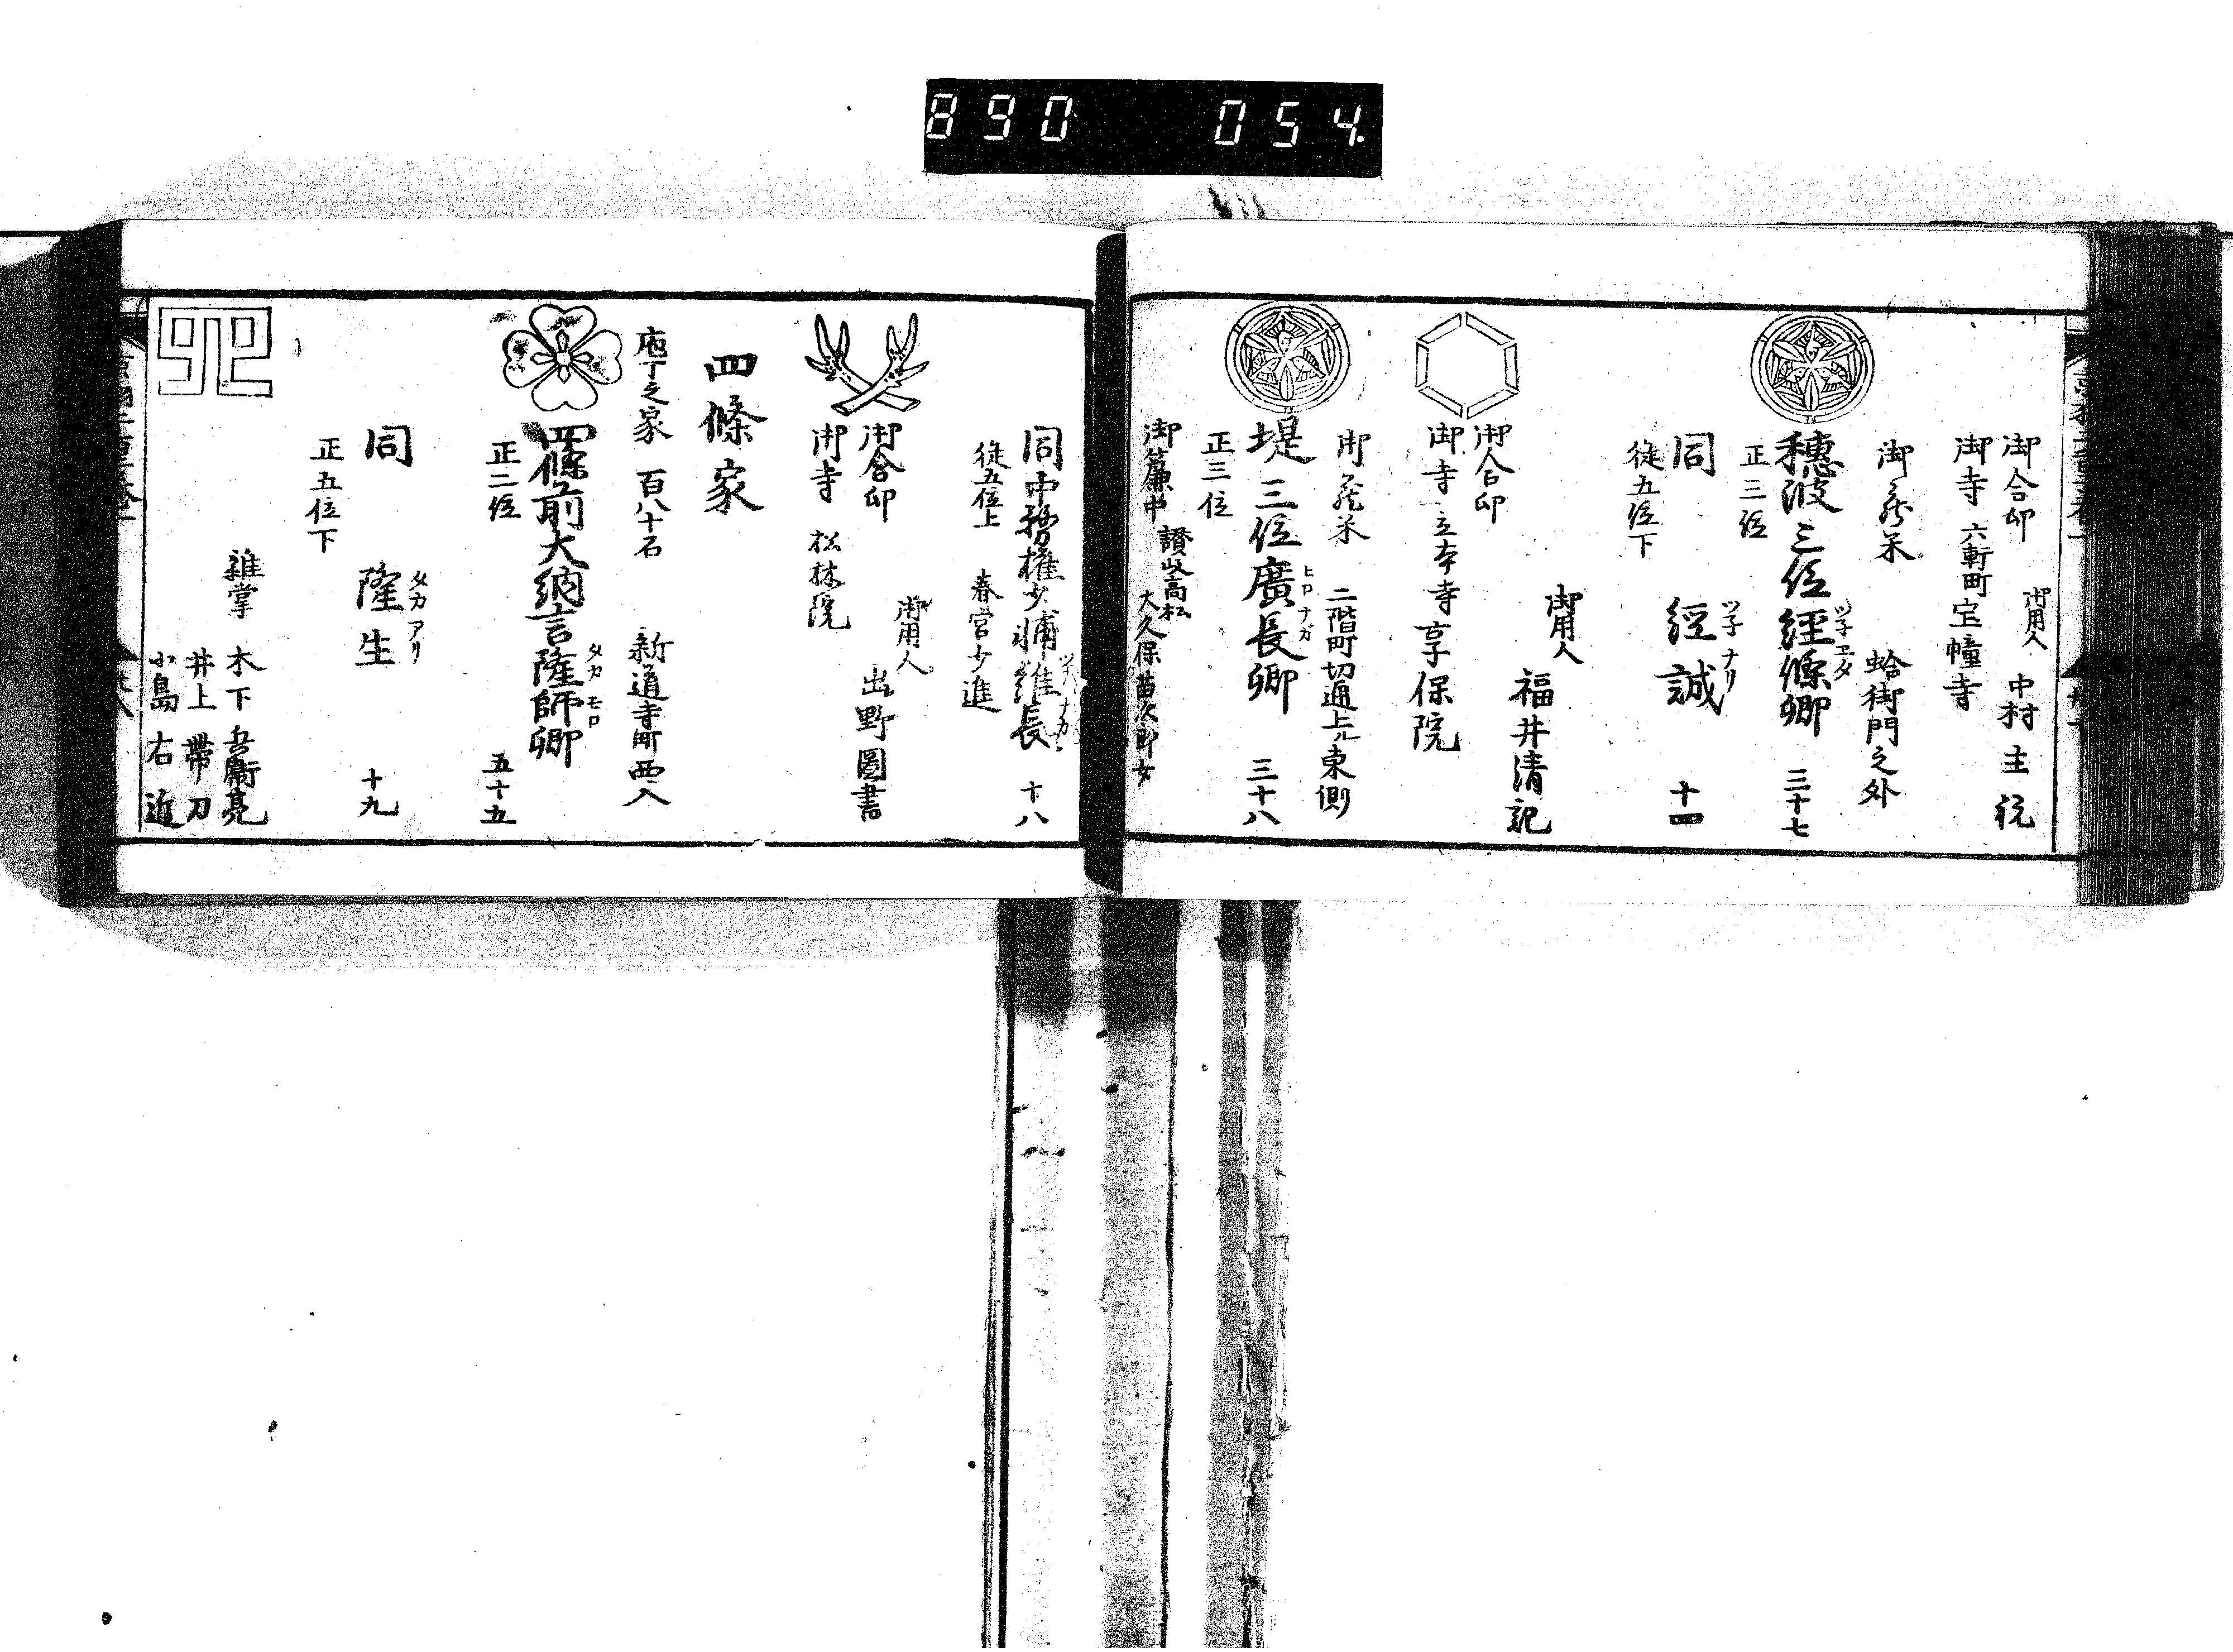 890 054
御合印
御用人 中村主税
御寺 六軒町宝幢寺
御蔵米 蛤御門之外
穂波三位経條卿 三十七
ツ子エダ
正三位
同 経誠 十四
ツ子ナリ
従五位下
御用人 福井清記
御合印
御寺 立本寺享保院
御蔵米 二階町切通上ル東側
堤三位廣長卿 三十八
ヒロナガ
正三位
御簾中 讃岐高松 大久保苗次郎女
同中務権少輔維長 十八
従五位上 春宮少進
御用人 出野圖書
御合印
御寺 松林院
四條家
庖丁之家 百八十石 新道寺町西入
四條前大納言隆師卿 五十五
タカモロ
正二位
同 隆生 十九
タカアリ
正五位下
雜掌 木下兵衛亮
井上帯刀
小島右近